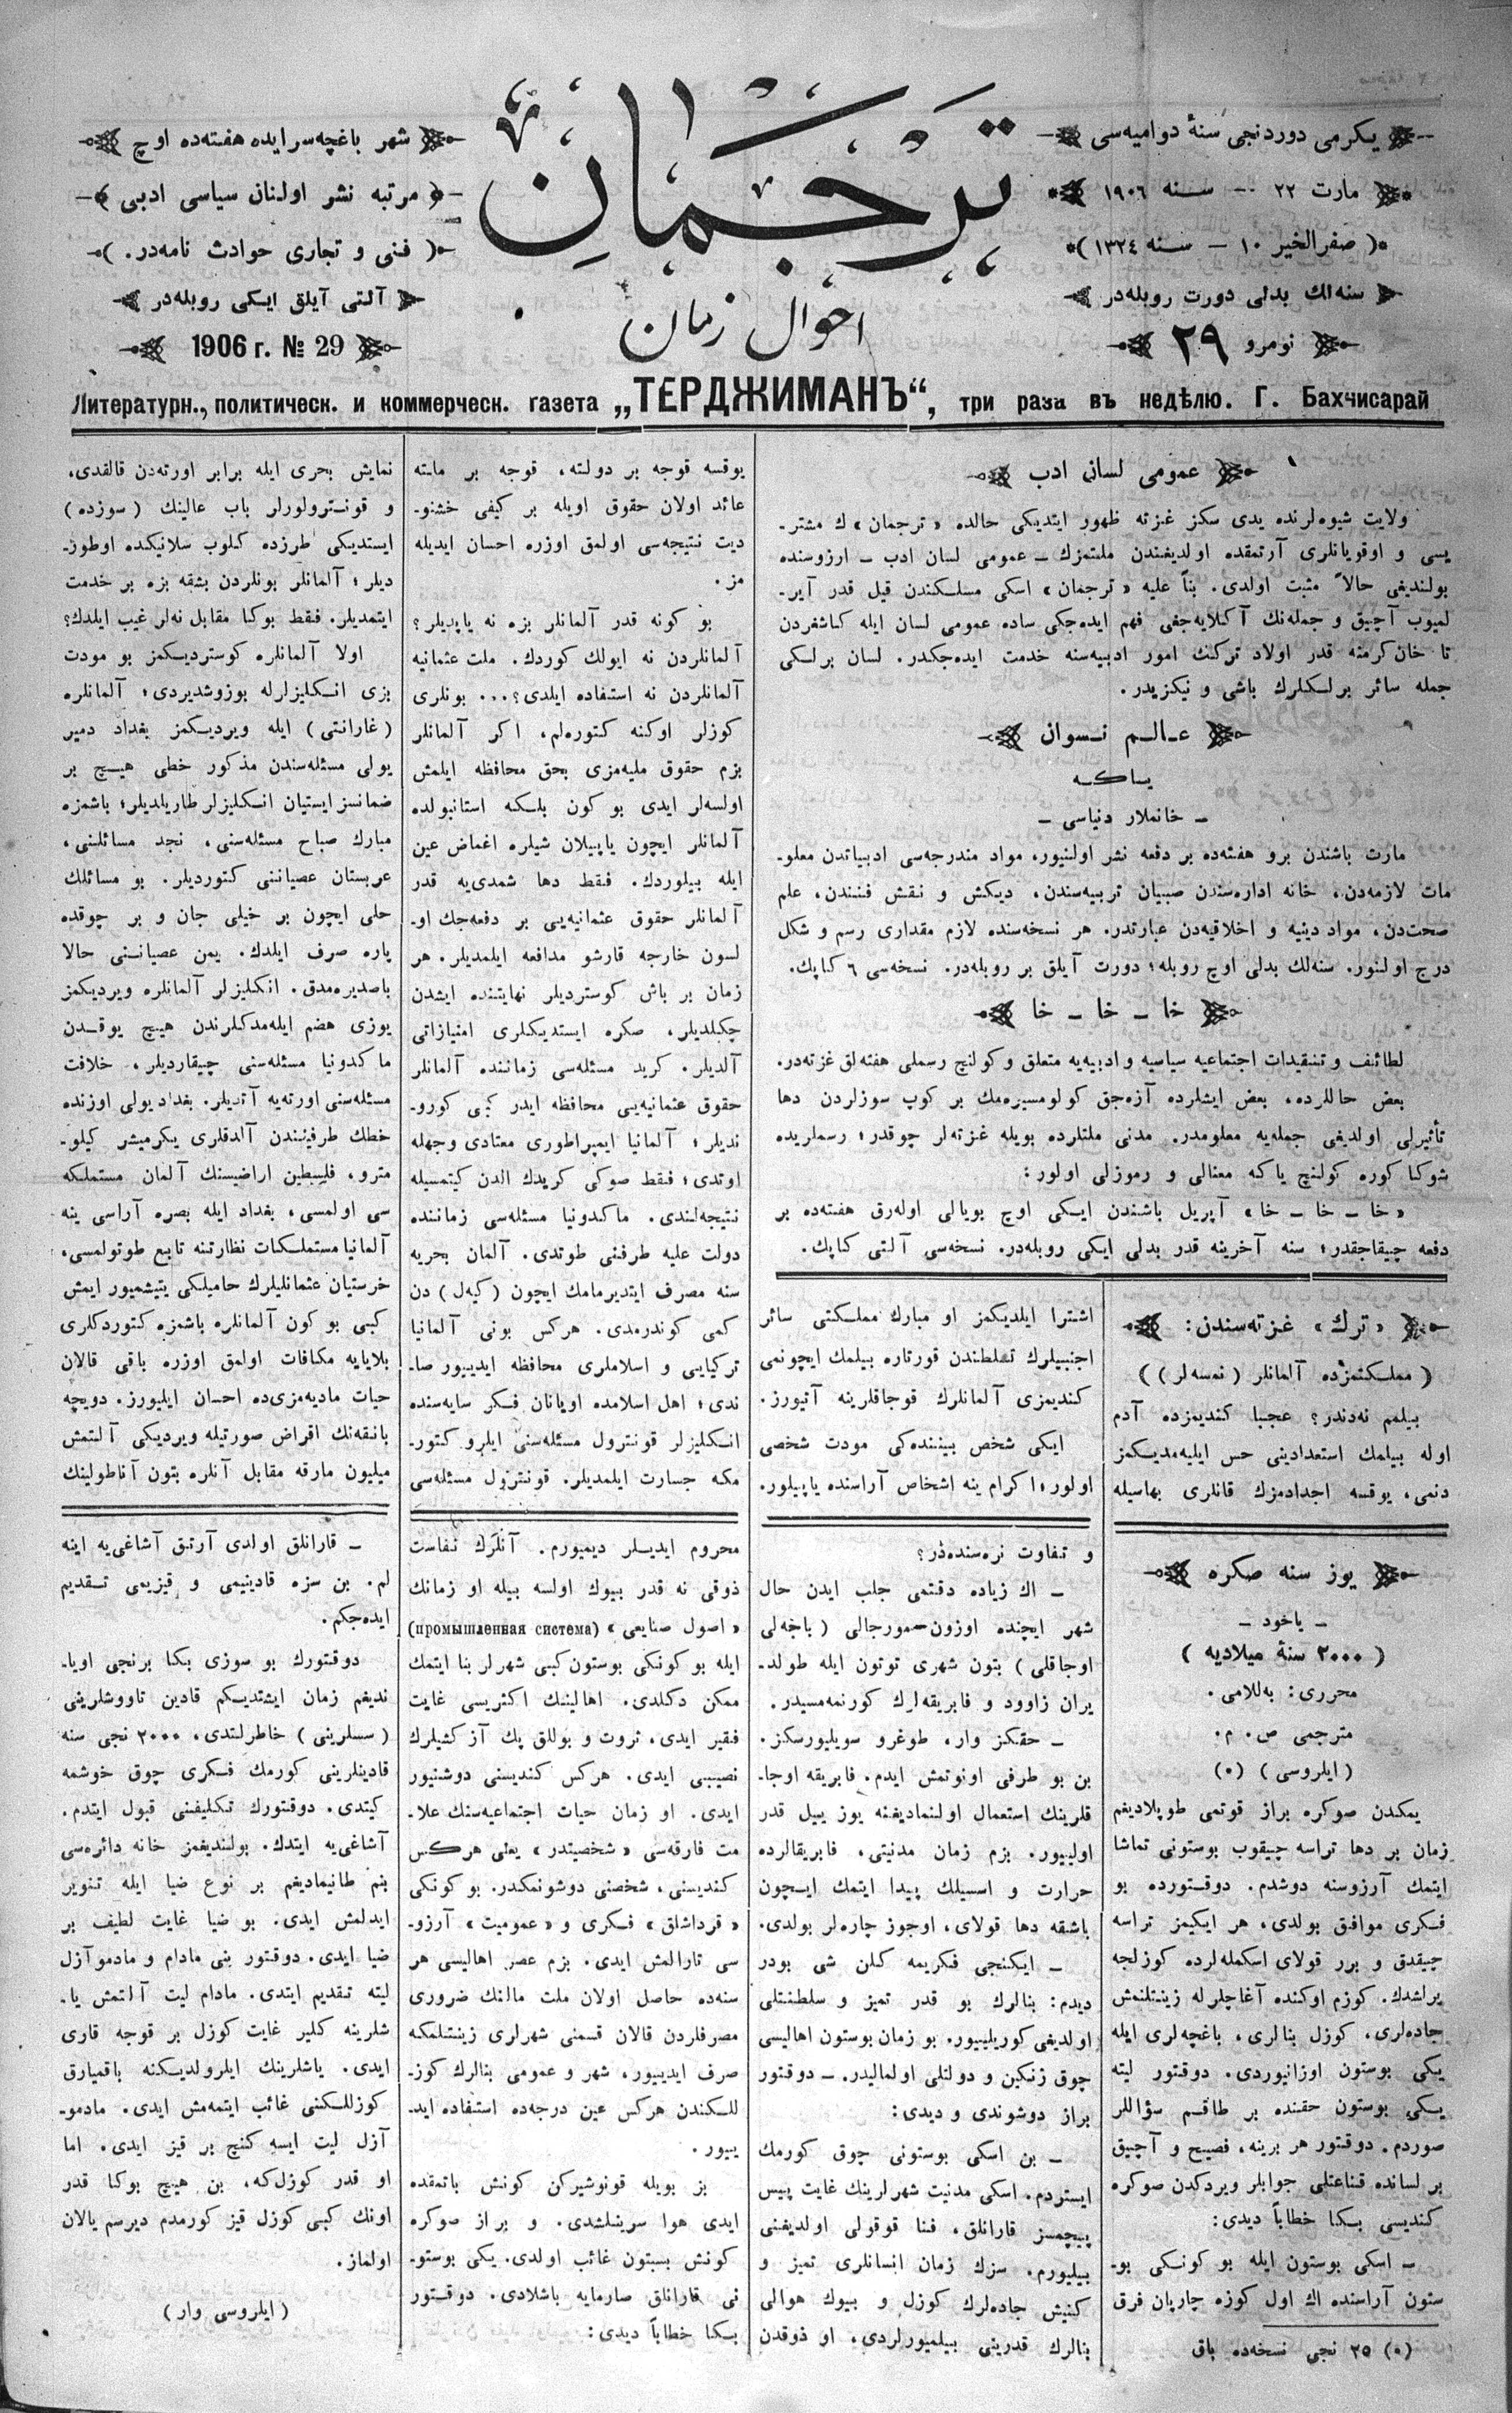 ترجمان
احوال زمان
یکرمی دوردنجی سنهٔ دوامیه‌سی
مارت ٢٢ — سنه ١٩٠٦
( صفرالخیر ١٠ — سنه ١٣٢٤ )
سنه‌لك بدلی دورت روبله‌در
نومرو ٢٩
شهر باغچه‌سرایده هفته‌ده اوچ
مرتبه نشر اولنان سیاسی ادبی
( فنی و تجاری حوادث نامه‌در. )
آلتی آیلق ایکی روبله‌در
1906 г. № 29
Литературн., политическ. и коммерческ. газета „ТЕРДЖИМАНЪ“, три раза въ недѣлю. Г. Бахчисарай
عمومی لسان ادب
ولایت شیوه‌لرنده یدی سکز غزته ظهور ایتدیکی حالده « ترجمان » ك مشتر-
یسی و اوقویانلری آرتمقده اولدیغندن ملتمزك — عمومی لسان ادب — ارزوسنده
بولندیغی حالاً مثبت اولدی. بناً علیه « ترجمان » اسکی مسلکندن قیل قدر آیر-
لمیوب آچیق و جمله‌نك آکلایه‌جغی فهم ایده‌جکی ساده عمومی لسان ایله کاشغردن
تا خان‌کرمنه قدر اولاد ترکك امور ادبیه‌سنه خدمت ایده‌جکدر. لسان برلکی
جمله سائر برلکلرك باشی و نیکزیدر.
عالم نسوان
یاکه
— خانملار دنیاسی —
مارت باشندن برو هفته‌ده بر دفعه نشر اولنیور، مواد مندرجه‌سی ادبیاتدن معلو-
مات لازمه‌دن، خانه اداره‌سندن صبیان تربیه‌سندن، دیکش و نقش فنندن، علم
صحت‌دن، مواد دینیه و اخلاقیه‌دن عبارتدر. هر نسخه‌سنده لازم مقداری رسم و شکل
درج اولنور. سنه‌لك بدلی اوچ روبله؛ دورت آیلق بر روبله‌در. نسخه‌سی ٦ کاپك.
خا — خا — خا
لطائف و تنقیدات اجتماعیه سیاسیه و ادبیه‌یه متعلق و کولنچ رسملی هفته‌لق غزته‌در.
بعض حاللرده، بعض ایشلرده آزه‌جق کولومسیره‌مك بر کوپ سوزلردن دها
تأثیرلی اولدیغی جمله‌یه معلومدر. مدنی ملتلرده بویله غزته‌لر چوقدر؛ رسملریده
شوکا کوره کولنچ یاکه معنالی و رموزلی اولور:
« خا — خا — خا » آپریل باشندن ایکی اوچ بویالی اوله‌رق هفته‌ده بر
دفعه چیقاجقدر؛ سنه آخرینه قدر بدلی ایکی روبله‌در. نسخه‌سی آلتی کاپك.
« ترك » غزته‌سندن:
( مملکتمزده آلمانلر ( نمسه‌لر ) )
بیلمم نه‌دندر؟ عجبا کندیمزده آدم
اوله بیلمك استعدادینی حس ایلیه‌مدیکمز
دنمی، یوقسه اجدادمزك قانلری بهاسیله
اشترا ایلدیکمز او مبارك مملکتی سائر
اجنبیلرك تسلطندن قورتاره بیلمك ایچونمی
کندیمزی آلمانلرك قوجاقلرینه آتیورز.
ایکی شخص بیننده‌کی مودت شخصی
اولور، اکرام ینه اشخاص آراسنده یاپیلور.
یوقسه قوجه بر دولته، قوجه بر ملته
عائد اولان حقوق اویله بر کیفی خشنو-
دیت نتیجه‌سی اولمق اوزره احسان ایدیله
مز.
بو کونه قدر آلمانلر بزه نه یاپدیلر؟
آلمانلردن نه ایولك کوردك. ملت عثمانیه
آلمانلردن نه استفاده ایلدی؟... بونلری
کوزلر اوکنه کتوره‌لم، اکر آلمانلر
بزم حقوق ملیه‌مزی بحق محافظه ایلمش
اولسه‌لر ایدی بو کون بلکه استانبولده
آلمانلر ایچون یاپیلان شیلره اغماض عین
ایله بیلوردك. فقط دها شمدی‌یه قدر
آلمانلر حقوق عثمانیه‌یی بر دفعه‌جك او-
لسون خارجه قارشو مدافعه ایلمدیلر. هر
زمان بر باش کوستردیلر نهایتنده ایشدن
چکیلدیلر، صکره ایستدیکلری امتیازاتی
آلدیلر. کرید مسئله‌سی زماننده آلمانلر
حقوق عثمانیه‌یی محافظه ایدر کبی کورو-
ندیلر؛ آلمانیا ایمپراطوری معتادی وجهله
اوتدی؛ فقط صوکی کریدك الدن کیتمسیله
نتیجه‌لندی. ماکدونیا مسئله‌سی زماننده
دولت علیه طرفنی طوتدی. آلمان بحریه
سنه مصرف ایتدیرمامك ایچون ( کیه‌ل ) دن
کمی کوندرمدی. هرکس بونی آلمانیا
ترکیایی و اسلاملری محافظه ایدییور صا-
ندی؛ اهل اسلامده اویانان فکر سایه‌سنده
انکلیزلر قونترول مسئله‌سنی ایلرو کتور-
مکه جسارت ایلمدیلر. قونترول مسئله‌سی
نمایش بحری ایله برابر اورته‌دن قالقدی،
و قونسترولورلر باب عالینك ( سوزده )
ایستدیکی طرزده کلوب سلانیکده اوطوز-
دیلر؛ آلمانلر بونلردن بشقه بزه بر خدمت
ایتمدیلر. فقط بوکا مقابل نه‌لر غیب ایلدك؟
اولا آلمانلره کوستردیکمز بو مودت
بزی انکلیزلرله بوزوشدیردی؛ آلمانلره
( غارانتی ) ایله ویردیکمز بغداد دمیر
یولی مسئله‌سندن مذکور خطی هیچ بر
ضمانسز ایستیان انکلیزلر طاریلدیلر؛ باشمزه
مبارك صباح مسئله‌سنی، نجد مسائلنی،
عربستان عصیاننی کتوردیلر. بو مسائلك
حلی ایچون بر خیلی جان و بر چوقده
پاره صرف ایلدك. یمن عصیاننی حالا
باصدیره‌مدق. انکلیزلر آلمانلره ویردیکمز
یوزی هضم ایله‌مدکلرندن هیچ یوقدن
ماکدونیا مسئله‌سنی چیقاردیلر، خلافت
مسئله‌سنی اورته‌یه آتدیلر. بغداد یولی اوزنده
خطك طرفیندن آلدقلری یکرمیشر کیلو-
مترو، فلسطین اراضیسنك آلمان مستملکه
سی اولمسی، بغداد ایله بصره آراسی ینه
آلمانیا مستملکات نظارتنه تابع طوتولمسی،
خرستیان عثمانلیلرك حامیلکی یتیشمیور ایمش
کبی بو کون آلمانلره باشمزه کتوردکلری
بلایایه مکافات اولمق اوزره باقی قالان
حیات مادیه‌مزی‌ده احسان ایلیورز. دویچه
بانقه‌نك اقراض صورتیله ویردیکی آلتمش
میلیون مارقه مقابل آنلره بتون آناطولینك
یوز سنه صکره
— یاخود —
( ٢٠٠٠ سنهٔ میلادیه )
محرری: به‌للامی.
مترجمی ص. م.
( ایلروسی ) (*)
یمکدن صوکره براز قوتمی طوپلادیغم
زمان بر دها تراسه چیقوب بوستونی تماشا
ایتمك آرزوسنه دوشدم. دوقتورده بو
فکری موافق بولدی، هر ایکیمز تراسه
چیقدق و برر قولای اسکمله‌لرده کوزلجه
یرلشدك. کوزم اوکنده آغاچلرله زینتلنمش
جاده‌لری، کوزل بنالری، باغچه‌لری ایله
یکی بوستون اوزانیوردی. دوقتور لیته
یکی بوستون حقنده بر طاقم سؤاللر
صوردم. دوقتور هر برینه، فصیح و آچیق
بر لسانده قناعتلی جوابلر ویردکدن صوکره
کندیسی بکا خطاباً دیدی:
— اسکی بوستون ایله بو کونکی بو-
ستون آراسنده اك اول کوزه چارپان فرق
(*) ٢٥ نجی نسخه‌ده باق
و تفاوت نره‌سنده‌در؟
— اك زیاده دقتمی جلب ایدن حال
شهر ایچنده اوزون مورجالی ( باجه‌لی
اوجاقلی ) بتون شهری توتون ایله طولد-
یران زاوود و فابریقه‌لرك کورنمه‌مسیدر.
— حقکز وار، طوغرو سویلیورسکز.
بن بو طرفی اونوتمش ایدم. فابریقه اوجا-
قلرینك استعمال اولنمادیغنه یوز ییل قدر
اولییور. بزم زمان مدنیتی، فابریقالرده
حرارت و اسسیلك پیدا ایتمك ایچون
باشقه دها قولای، اوجوز چاره‌لر بولدی.
— ایکنجی فکریمه کلن شی بودر
دیدم: بنالرك بو قدر تمیز و سلطنتلی
اولدیغی کوریلییور. بو زمان بوستون اهالیسی
چوق زنکین و دولتلی اولمالیدر. — دوقتور
براز دوشوندی و دیدی:
— بن اسکی بوستونی چوق کورمك
ایستردم. اسکی مدنیت شهرلرینك غایت پیس
پیچمسز قارانلق، فنا قوقولی اولدیغنی
بیلیورم. سزك زمان انسانلری تمیز و
کنیش جاده‌لرك کوزل و بیوك هوالی
بنالرك قدرینی بیلمیورلردی، او ذوقدن
محروم ایدیلر دیمیورم. آنلرك نفاست
ذوقی نه قدر بیوك اولسه بیله او زمانك
« اصول صنایعی » (промышленная система)
ایله بو کونکی بوستون کبی شهرلر بنا ایتمك
ممکن دکلدی. اهالینك اکثریسی غایت
فقیر ایدی، ثروت و بوللق پك آز کشیلرك
نصیبی ایدی. هرکس کندیسنی دوشنیور
ایدی. او زمان حیات اجتماعیه‌سنك علا-
مت فارقه‌سی « شخصیتدر » یعنی هرکس
کندیسنی، شخصنی دوشونمکدر. بو کونکی
« قرداشلق » فکری و « عمومیت » آرزو-
سی تارالمش ایدی. بزم عصر اهالیسی هر
سنه‌ده حاصل اولان ملت مالنك ضروری
مصرفلردن قالان قسمنی شهرلری زینتلمکه
صرف ایدییور، شهر و عمومی بنالرك کوز-
للکندن هرکس عین درجه‌ده استفاده اید-
ییور.
بز بویله قونوشیرکن کونش باتمقده
ایدی هوا سرینلشدی. و براز صوکره
کونش بسبتون غائب اولدی. یکی بوستو-
نی قارانلق صارمایه باشلادی. دوقتور
بکا خطاباً دیدی:
— قارانلق اولدی آرتق آشاغی‌یه اینه
لم. بن سزه قادینیمی و قیزیمی تقدیم
ایده‌جکم.
دوقتورك بو سوزی بکا برنجی اویا-
ندیغم زمان ایشتدیکم قادین تاووشلرینی
( سسلرینی ) خاطرلتدی، ٢٠٠٠ نجی سنه
قادینلرینی کورمك فکری چوق خوشمه
کیتدی. دوقتورك تکلیفنی قبول ایتدم.
آشاغی‌یه ایندك. بولندیغمز خانه دائره‌سی
بنم طانیمادیغم بر نوع ضیا ایله تنویر
ایدلمش ایدی. بو ضیا غایت لطیف بر
ضیا ایدی. دوقتور بنی مادام و مادموآزل
لیته تقدیم ایتدی. مادام لیت آلتمش یا-
شلرینه کلیر غایت کوزل بر قوجه قاری
ایدی. یاشلرینك ایلرولدیکنه باقمیارق
کوزللکنی غائب ایتمه‌مش ایدی. مادمو-
آزل لیت ایسه کنچ بر قیز ایدی. اما
او قدر کوزل‌که، بن هیچ بوکا قدر
اونك کبی کوزل قیز کورمدم دیرسم یالان
اولماز.
( ایلروسی وار )